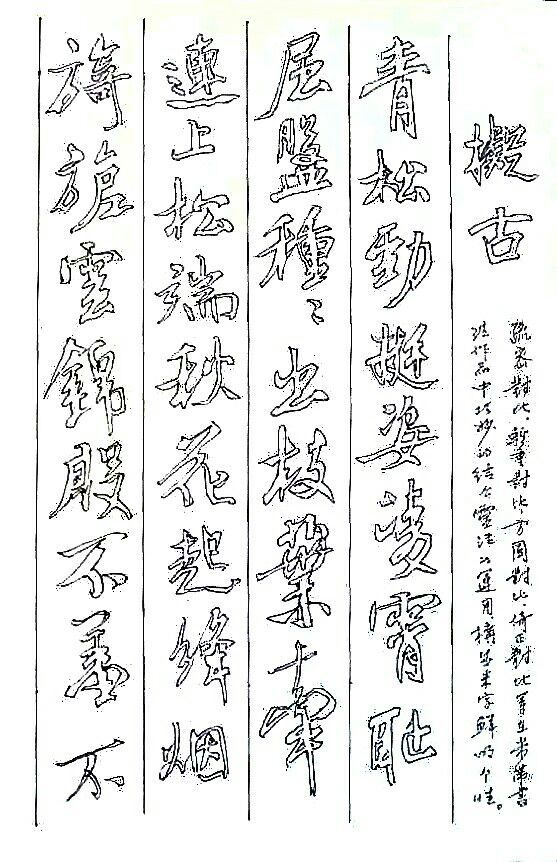 擬古
疏密對比、輕重對比、方圓對比、倚正對比等在米芾書
法作品中巧妙的結合靈活的運用米字鮮明个性。
青松勁挺姿凌霄恥
屈盤種〻出枝葉牽
連上松端秋花起絳烟
旖旎雲錦殷不羞不